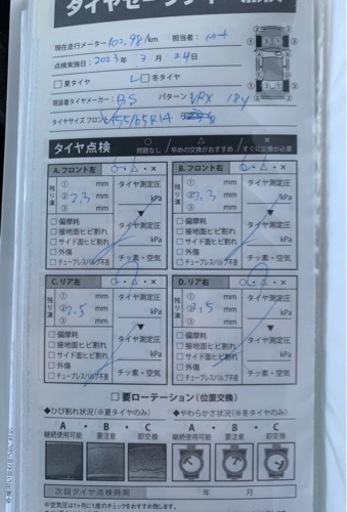 現在走行メーター 102,981km 担当者:
点検実施日: 2023年 3月 24日
□夏タイヤ ☑冬タイヤ
現装着タイヤメーカー: BS パターン VRX 18y
タイヤサイズフロント 155/65R14
タイヤ点検 ○ 問題なし / △ 早めの交換がおすすめ / × すぐに交換が必要
A. フロント左 ○・△・×
残り溝
① mm
② 2.3 mm
③ mm
タイヤ測定圧
kPa
▼
kPa
□偏摩耗
□接地面ヒビ割れ
□サイド面ヒビ割れ
□外傷
□チューブレスバルブ不良
チッ素・空気
B. フロント右 ○・△・×
残り溝
① mm
② 2.3 mm
③ mm
タイヤ測定圧
kPa
▼
kPa
□偏摩耗
□接地面ヒビ割れ
□サイド面ヒビ割れ
□外傷
□チューブレスバルブ不良
チッ素・空気
C. リア左 ○・△・×
残り溝
① mm
② 2.5 mm
③ mm
タイヤ測定圧
kPa
▼
kPa
□偏摩耗
□接地面ヒビ割れ
□サイド面ヒビ割れ
□外傷
□チューブレスバルブ不良
チッ素・空気
D. リア右 ○・△・×
残り溝
① mm
② 2.5 mm
③ mm
タイヤ測定圧
kPa
▼
kPa
□偏摩耗
□接地面ヒビ割れ
□サイド面ヒビ割れ
□外傷
□チューブレスバルブ不良
チッ素・空気
□要ローテーション(位置交換)
◆ひび割れ状況(※夏タイヤのみ) ◆やわらかさ状況(※冬タイヤのみ)
A・B・C A・B・C
継続使用可能 要注意 即交換 継続使用可能 要注意 即交換
次回タイヤ点検時期 年 月
※空気圧は1ヶ月に1度のチェックをおすすめ致します。